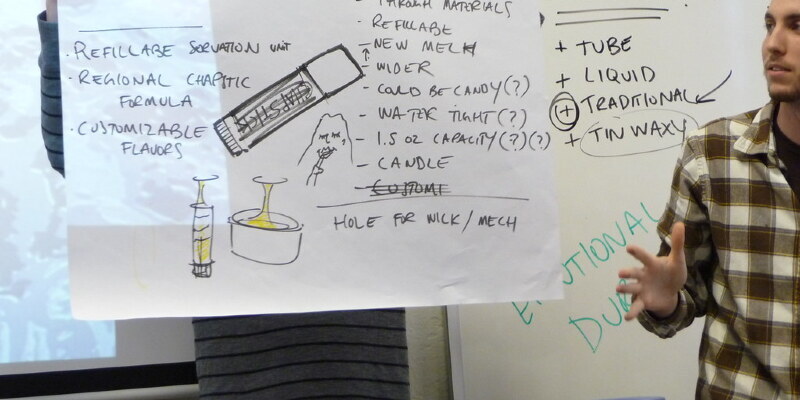 REFILLABE SORVATION UNIT
REGIONAL CHAPTIC
FORMULA
CUSTOMIZABLE
FLAVORS
THROUGH MATERIALS
REFILLABE
NEW
WIDER
COULD BE CANDY(?)
WATER TIGHT(?)
1.5 OZ CAPACITY(?)(?)
CANDLE
HOLE FOR WICK/MECH
+ TUBE
+ LIQUID
+ TRADITIONAL
+ TIN WAXY